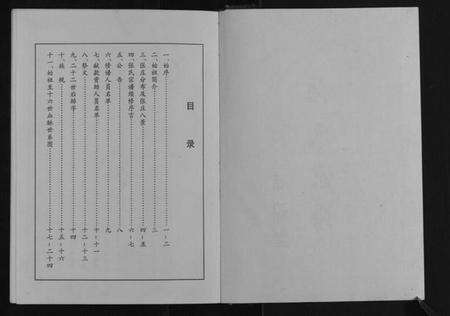 目录
一、始序……一-二
二、始祖简介……三
三、张庄分布及张庄八景……四-五
四、张氏宗谱续修序言……六-七
五、公告……八
六、修谱人员名单……九
七、献款资助人员名单……十-十一
八、祭文……十二-十三
九、二十二世后辈字……十四
十、族规……十五-十六
十一、始祖至十六世血脉世系图……十七-二十四